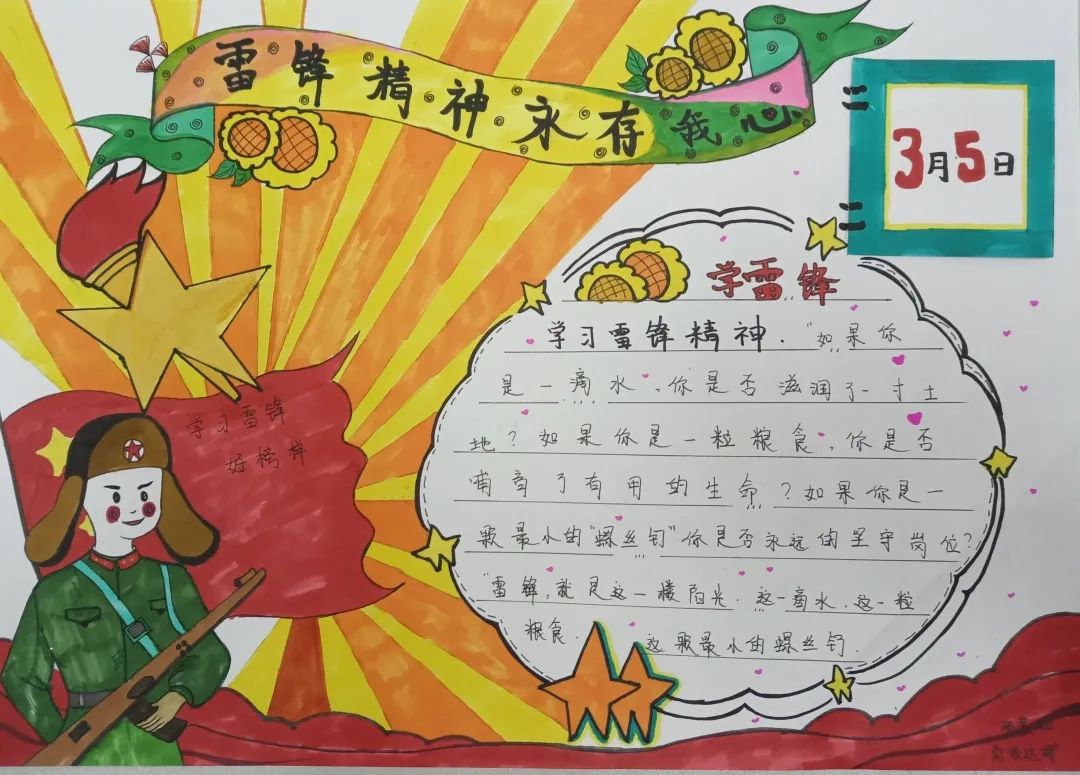 雷锋精神永存我心
3月5日
学雷锋
学习雷锋精神."如果你
是一滴水,你是否滋润了一寸土
地?如果你是一粒粮食,你是否
哺育了有用的生命?如果你是一
颗最小的"螺丝钉"你是否永远的坚守岗位?
"雷锋,就是这一楼陌光.这一滴水.这一粒
粮食.这颗最小的螺丝钉.
学习雷锋
好榜样